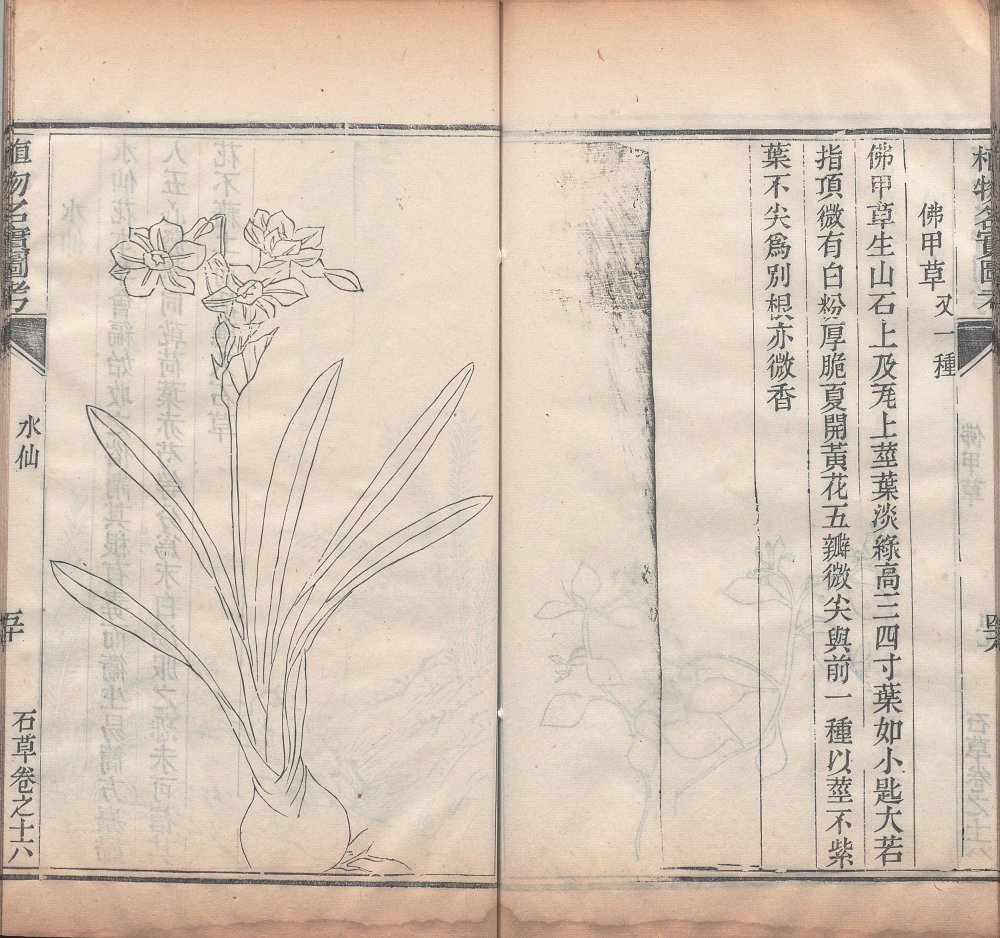 植物名實圖考
佛甲草
石草卷之十六
佛甲草又一種
佛甲草生山石上及𤬦上莖葉淡綠高三四寸葉如小匙大若
指頂微有白粉厚脆夏開黃花五瓣微尖與前一種以莖不紫
葉不尖爲別根亦微香
植物名實圖考
水仙
五十
石草卷之十六